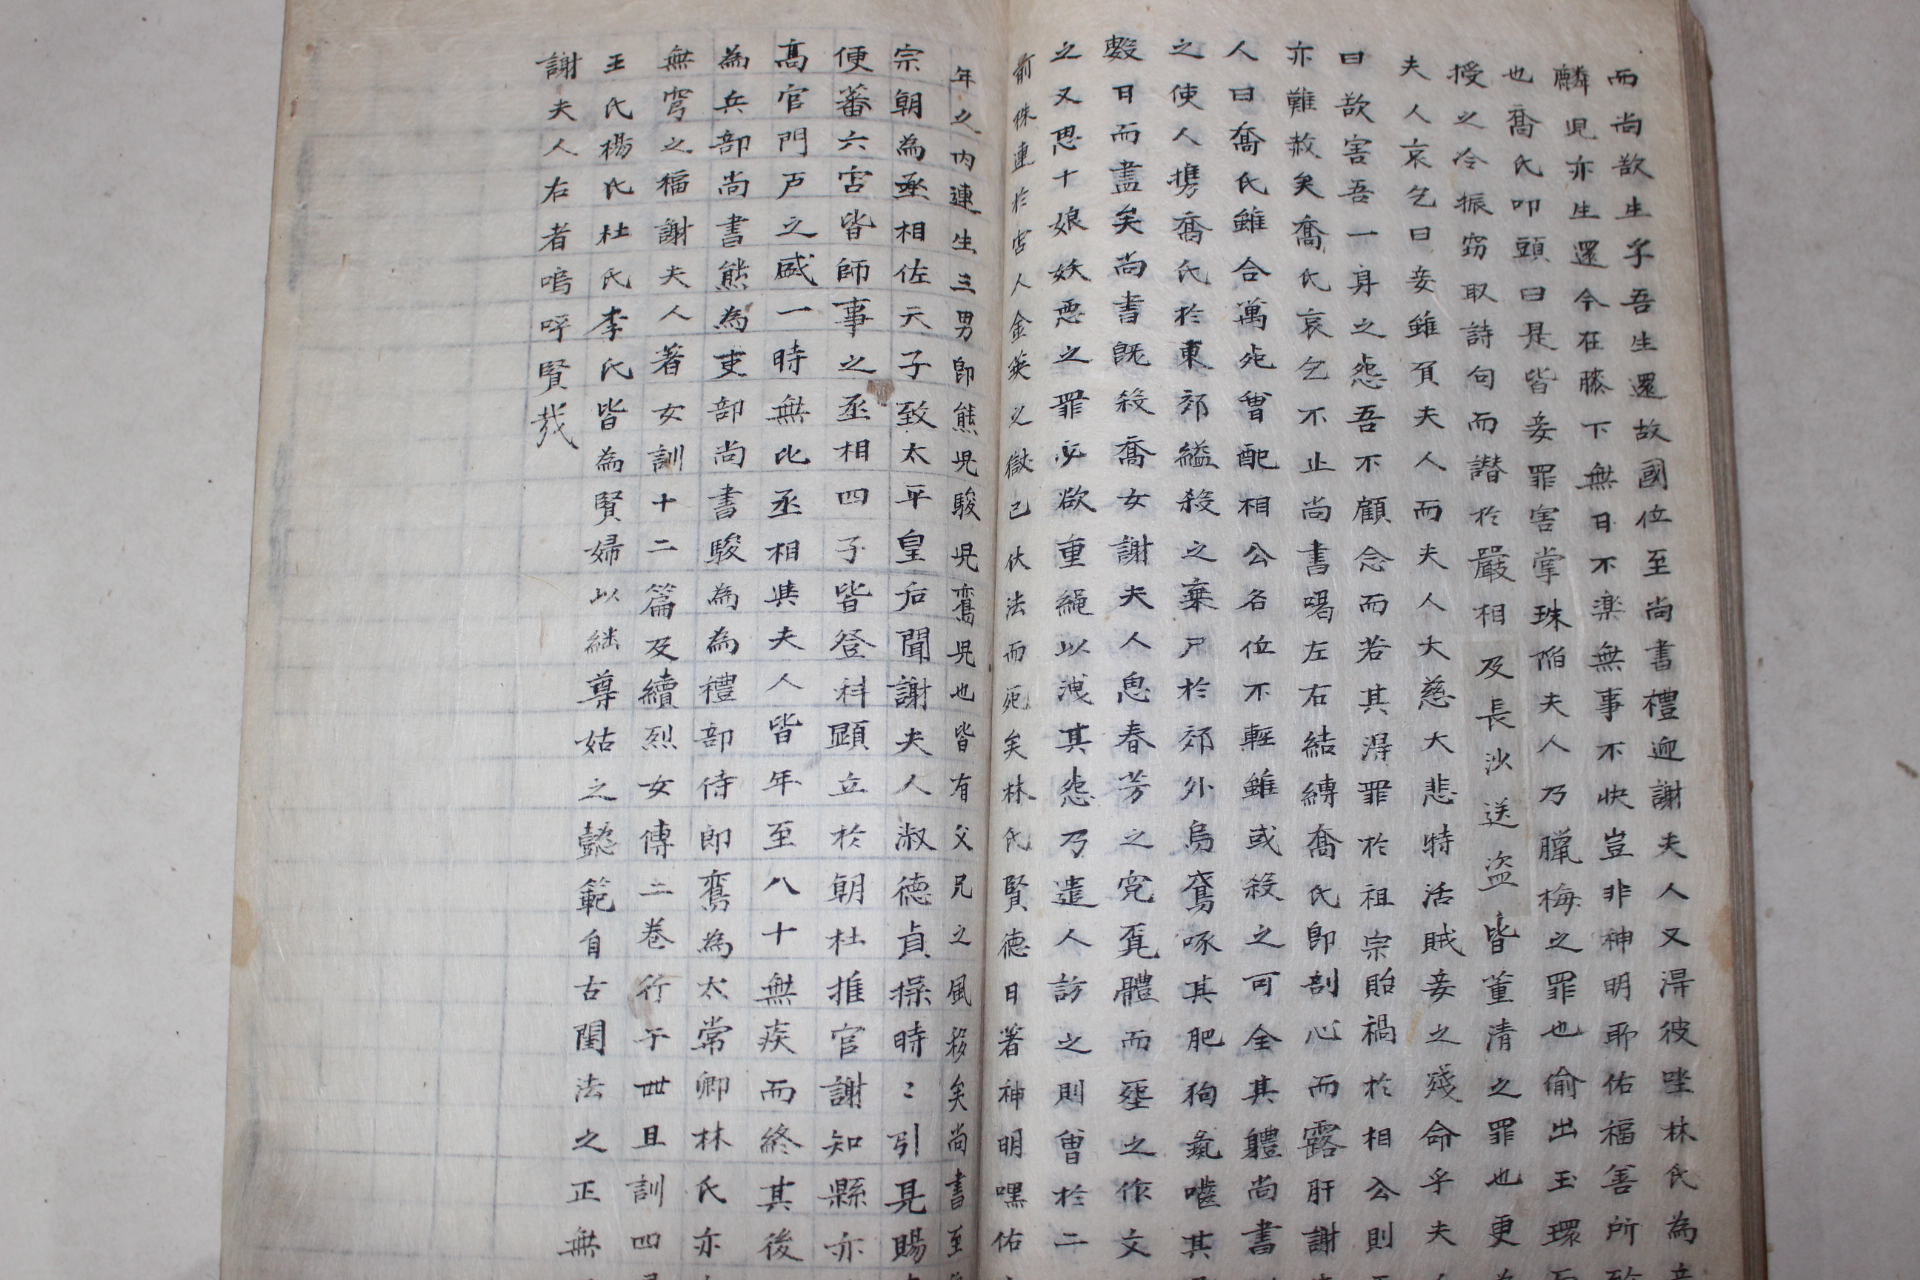 而尚欲生子吾生還故國位至尚書禮迎謝夫人又得彼唑林氏為
麟兒亦生還今在膝下無日不楽無事不快豈非神明耶佑福善所致
也喬氏叩頭曰是皆妾罪害掌珠陷夫人乃臘梅之罪也偷出玉環而
授之冷振窃取詩句而譛於嚴相及長沙送盗皆董清之罪也更
夫人哀乞曰妾雖負夫人而夫人大慈大悲特活賊妾之殘命乎夫
曰欲害吾一身之怨吾不顧念而若其淂罪於祖宗貽禍於相公則
亦難赦矣喬氏哀乞不止尚書喝左右結縛喬氏即剖心而露肝謝
人曰喬氏雖合萬死曾配相公名位不輕雖或殺之可全其軆尚書
之使人携喬氏於東郊縊殺之棄尸於郊外烏鳶啄其肥狗彘嚙其
數日而盡矣尚書既殺喬女謝夫人思春芳之寃窀體而堙之作文
之又思十娘妖惡之罪必欲重繩以洩其怨乃遣人訪之則曾於二
前侏連於宮人金英之獄已伏法而死矣林氏賢德日著神明嘿佑
年之内連生三男即熊児駿児鸞児也皆有父兄之風稱矣尚書至
宗朝為丞相佐天子致太平皇后聞謝夫人淑德貞操時〻引見賜
便蕃六宮皆師事之丞相四子皆登科顕立於朝杜推官謝知縣亦
髙官門戸之盛一時無比丞相與夫人皆年至八十無疾而終其後
為兵部尚書熊為吏部尚書駿為禮部侍郎鸞為太常卿林氏亦
無穹之福謝夫人著女訓十二篇及續烈女傳二巻行于丗且訓四
王氏楊氏杜氏李氏皆為賢婦以継尊姑之懿範自古閨法之正無
謝夫人右者嗚呼賢哉